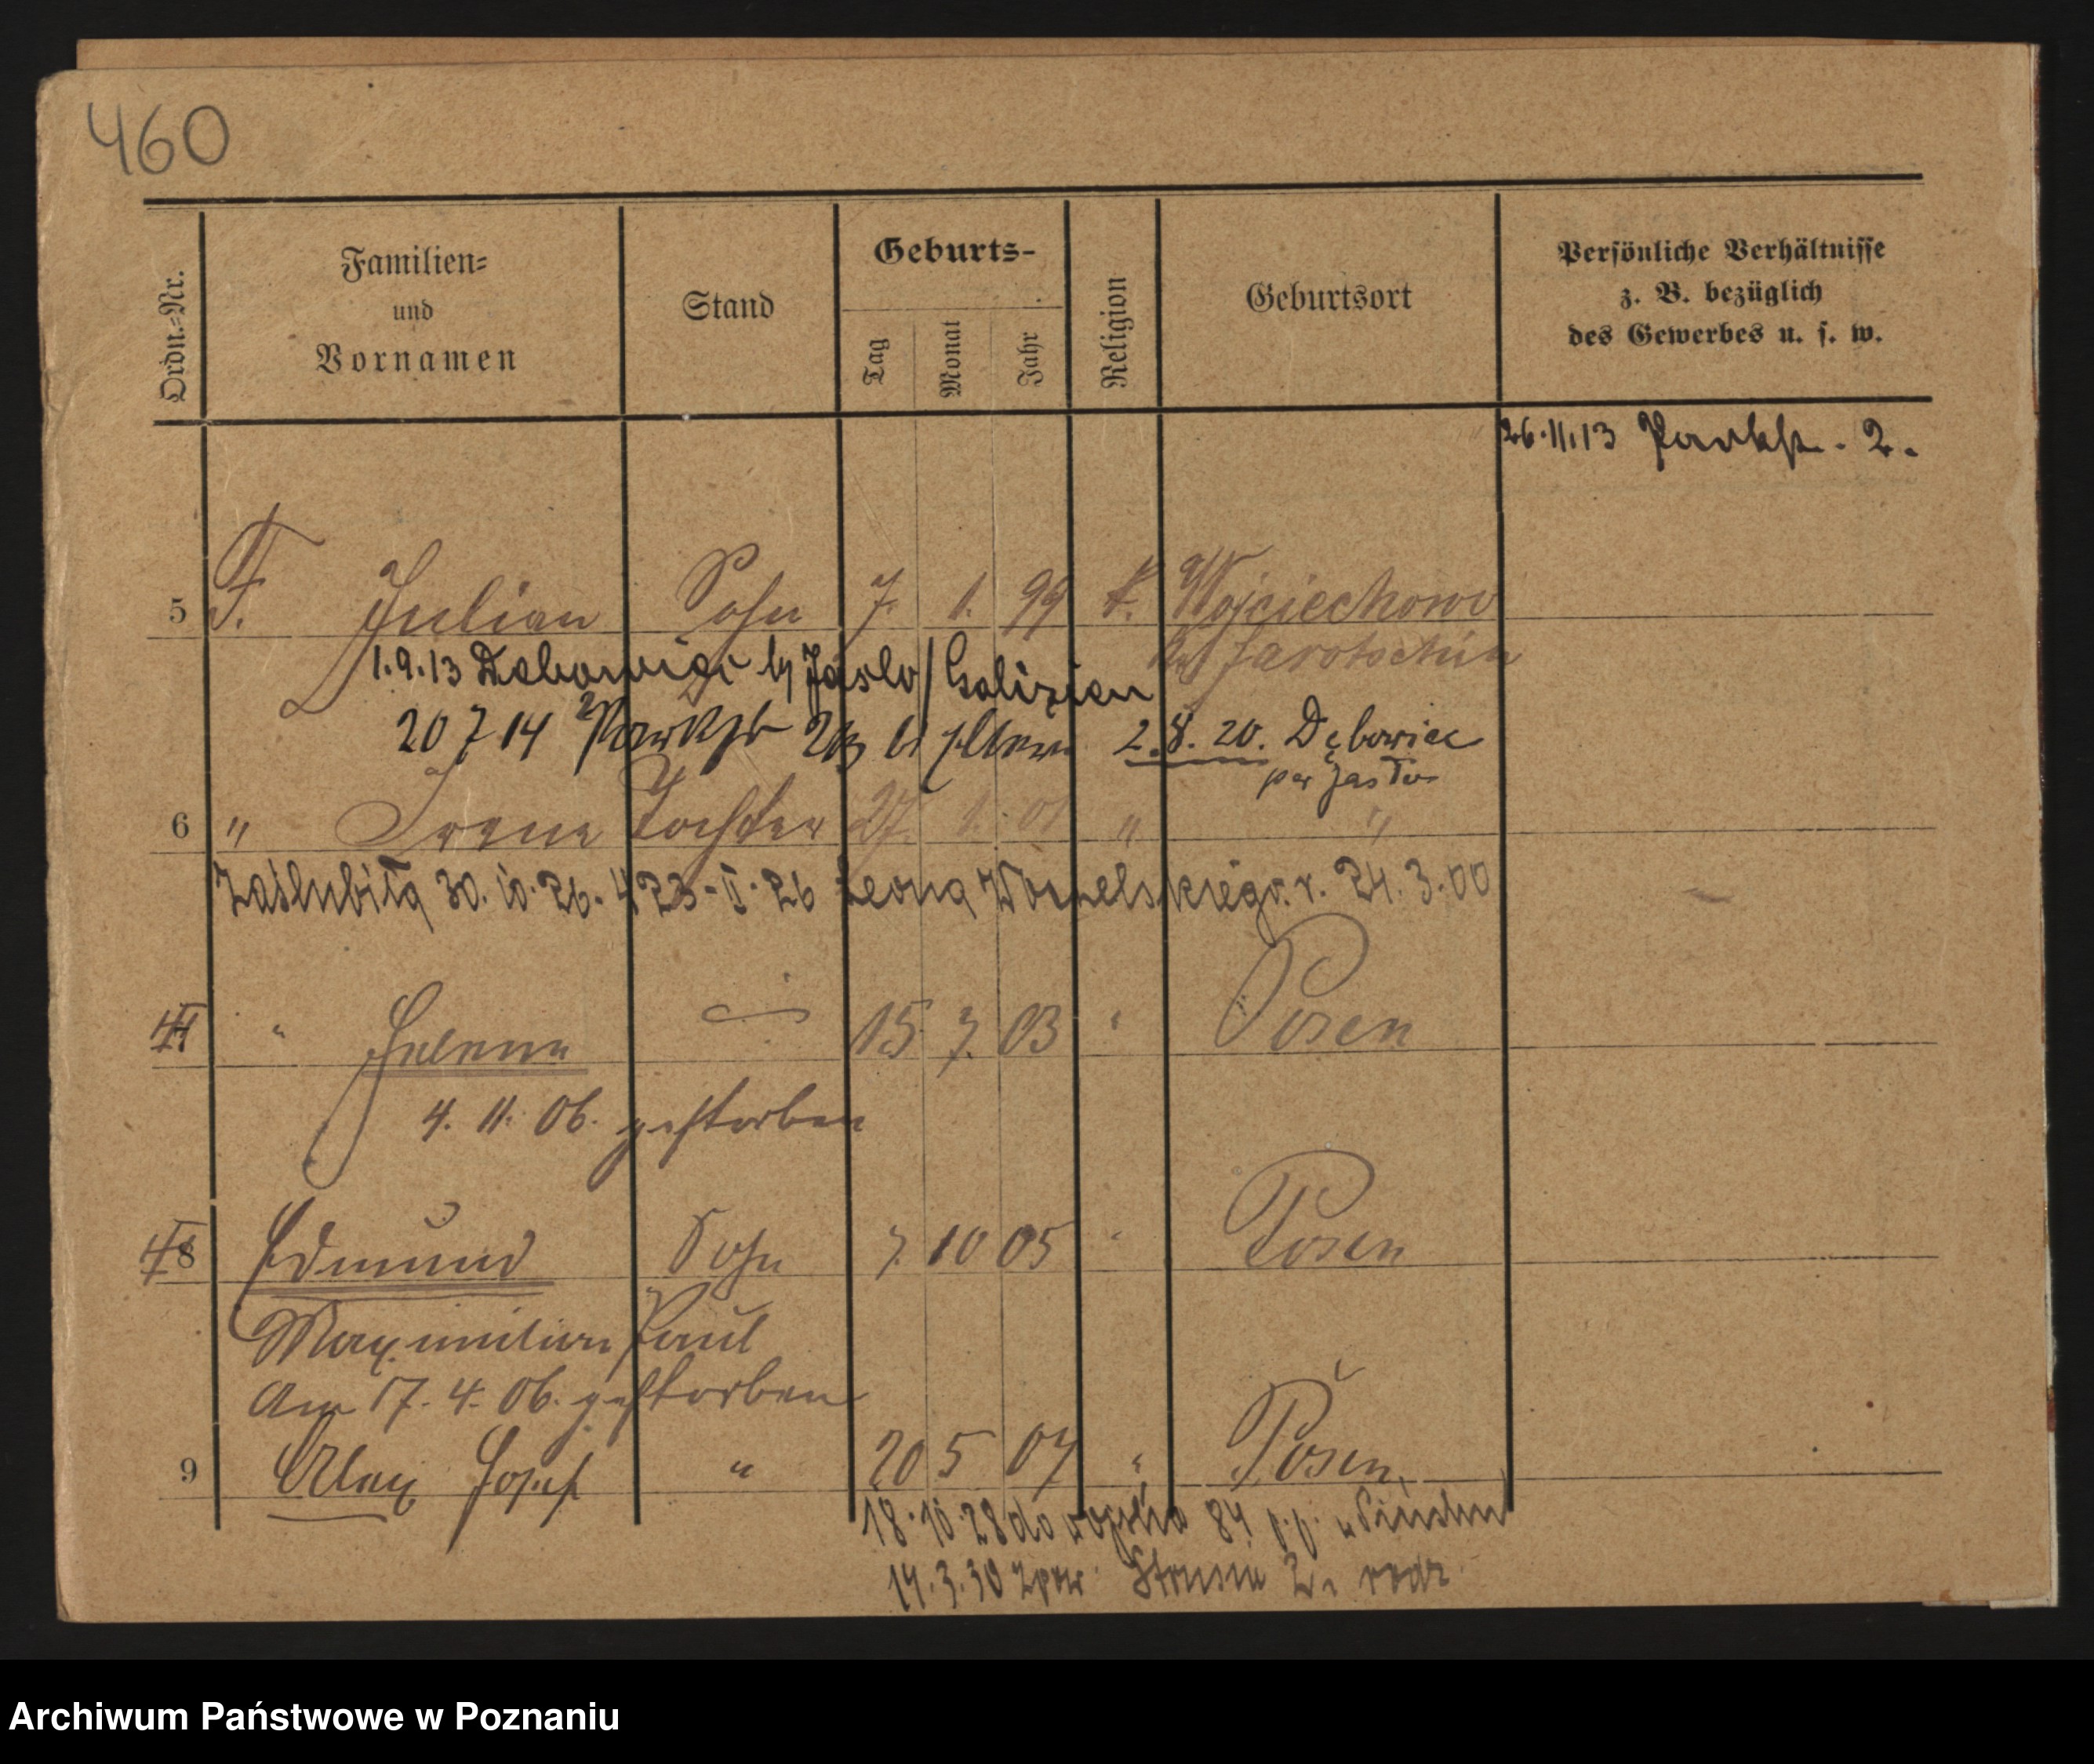 460
Ordn.-Nr.
Familien-
und
Vornamen
Stand
Geburts-
Tag
Monat
Jahr
Religion
Geburtsort
Persönliche Verhältnisse
z. B. bezüglich
des Gewerbes u. s. w.
26.11.13 Parkstr. 2.
5 F. Julian Sohn 7. 1. 99 k. Wojciechowo
Jarotschin
1.9.13 Jaslo / Galizien
20 7 14 Parkstr 2 b/ Eltern 2.8.20. Dębowiec
per Jasło
6 " Irene Tochter 27. 1. 01 " "
Zaślubiła 30.10.26. 423-II-26 Leona r. 24.3.00
" Helene 15 7. 03 " Posen
4. 11. 06. gestorben
8 Edmund Sohn 7. 10 05 " Posen
Maximilian Paul
Am 17. 4. 06. gestorben
9 Alex Josef " 20 5 07 " Posen,
18.10.28 do wojska 84 p.p. w Pińsku
14.3.30 z pow. Strusia 2. rodz.
Archiwum Państwowe w Poznaniu